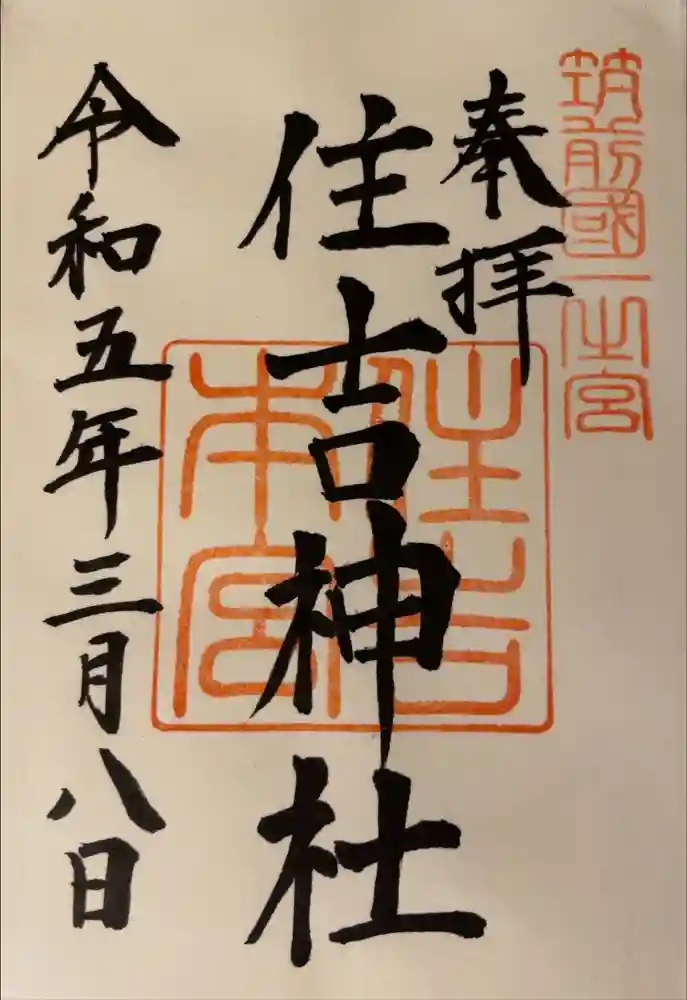 筑前國一之宮
奉拝
住吉神社
住吉
本宮
令和五年三月八日